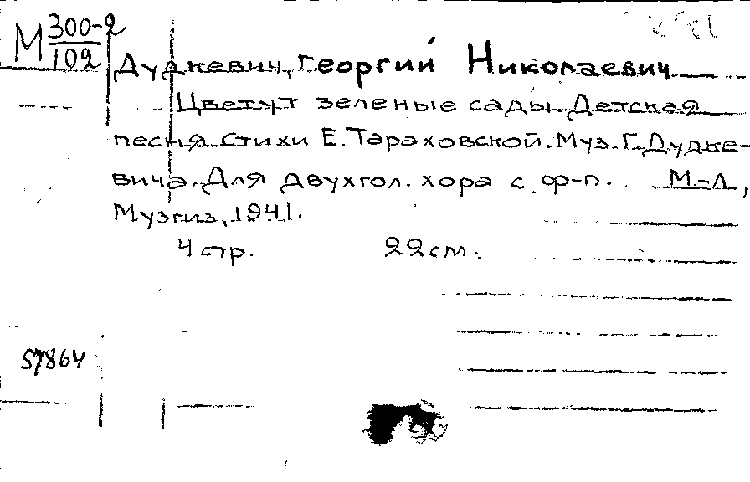 М 300-2
102
Дудкевич, Георгий Николаевич
Цветут зеленые сады. Детская
песня. Стихи Е. Тараховской. Муз. Г. Дудке-
вича. Для двухгол. хора с ф-п. М.-Л,
Музгиз, 1941.
4 стр. 22 см.
57864